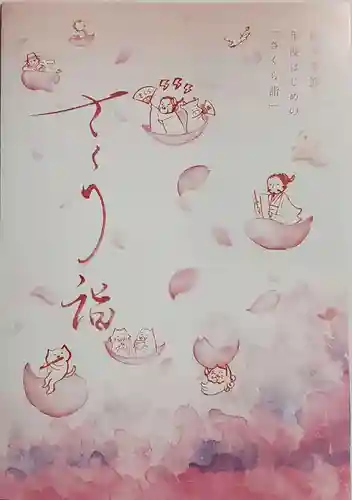 年度はじめの
「さくら詣」
さくら詣